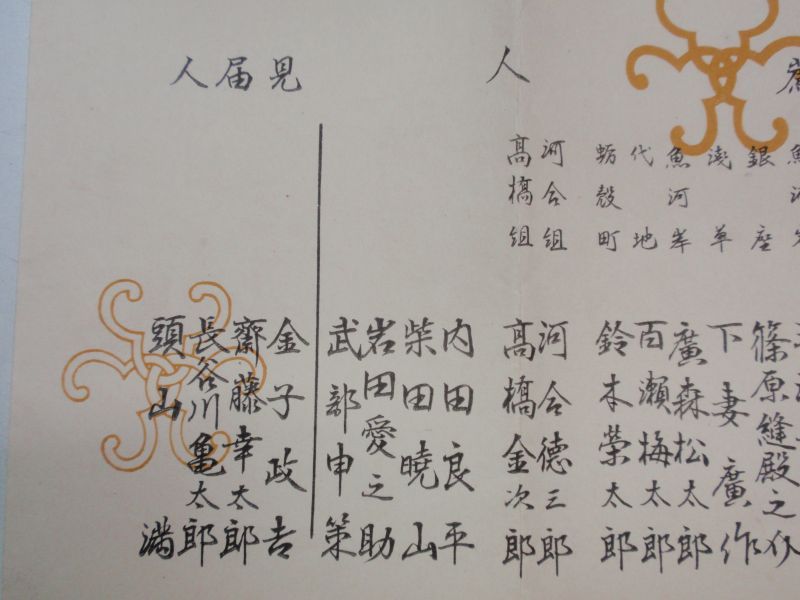 銀座 篠原縫殿之
浅草 下妻廣作
魚河岸 廣森松太郎
代地 百瀬梅太郎
蛎殻町 鈴木榮太郎
河合組 河合德三郎
高橋組 高橋金次郎
人
内田良平
柴田曉山
岩田愛之助
武部申策
見届人
金子政吉
齋藤幸太郎
長谷川亀太郎
頭山満